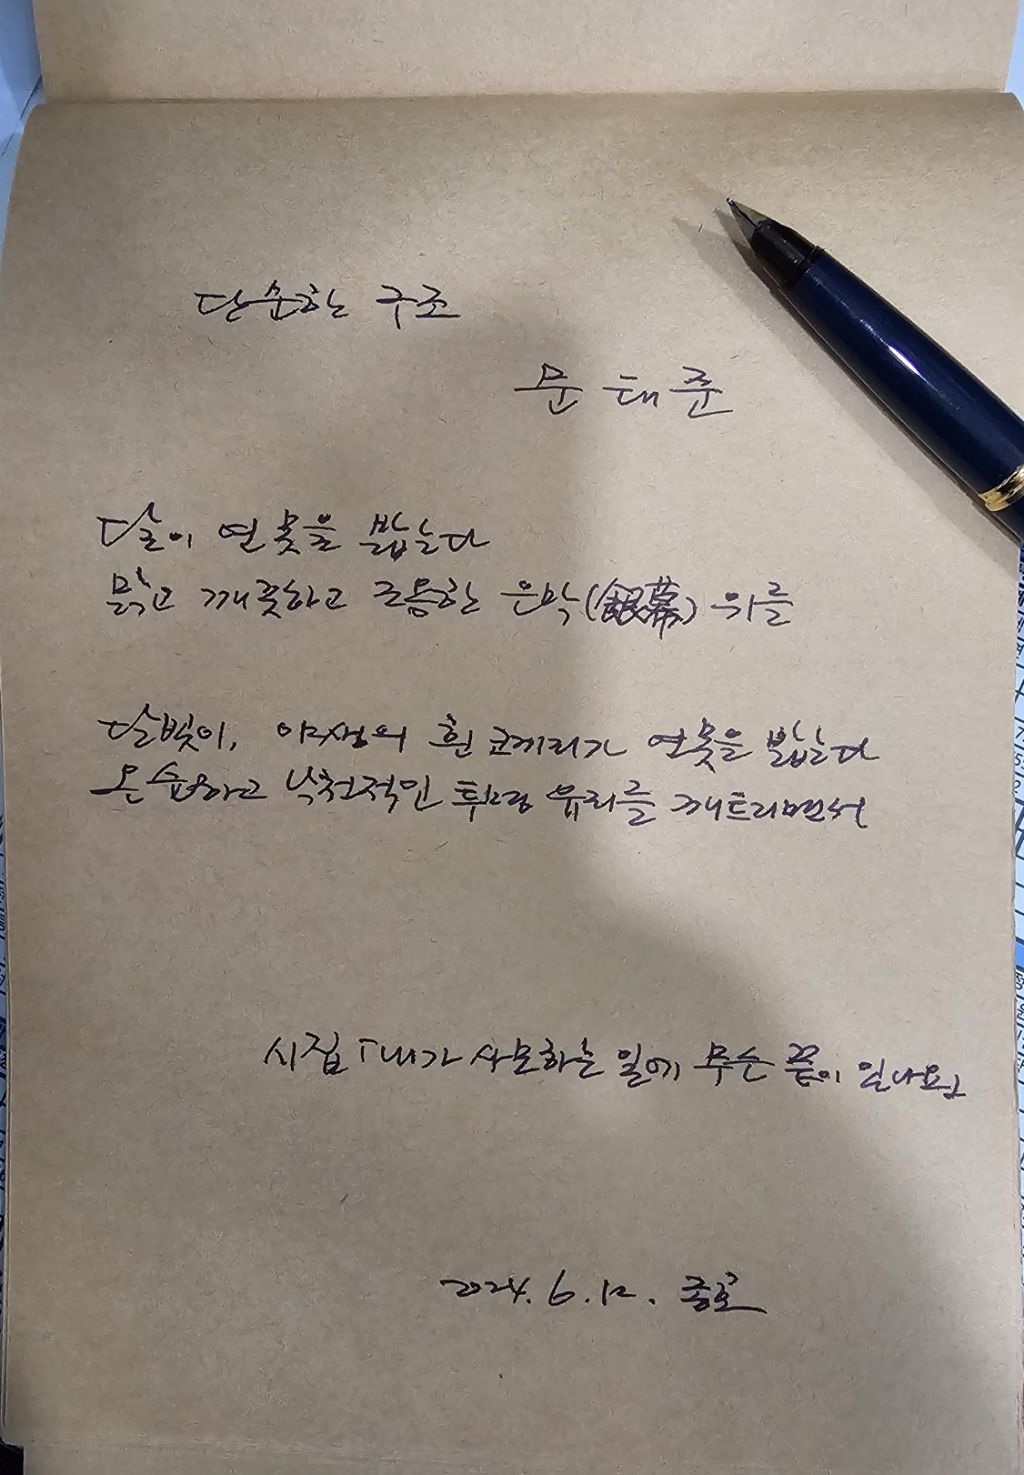 단순한 구조
문태준
달이 연못을 밟는다
맑고 깨끗하고 조용한 은막(銀幕) 위를
달빛이, 야생의 흰 코끼리가 연못을 밟는다
온순하고 낙천적인 투명 유리를 깨트리면서
시집 「내가 사모하는 일에 무슨 끝이 있나요」
2024. 6. 12. 종로